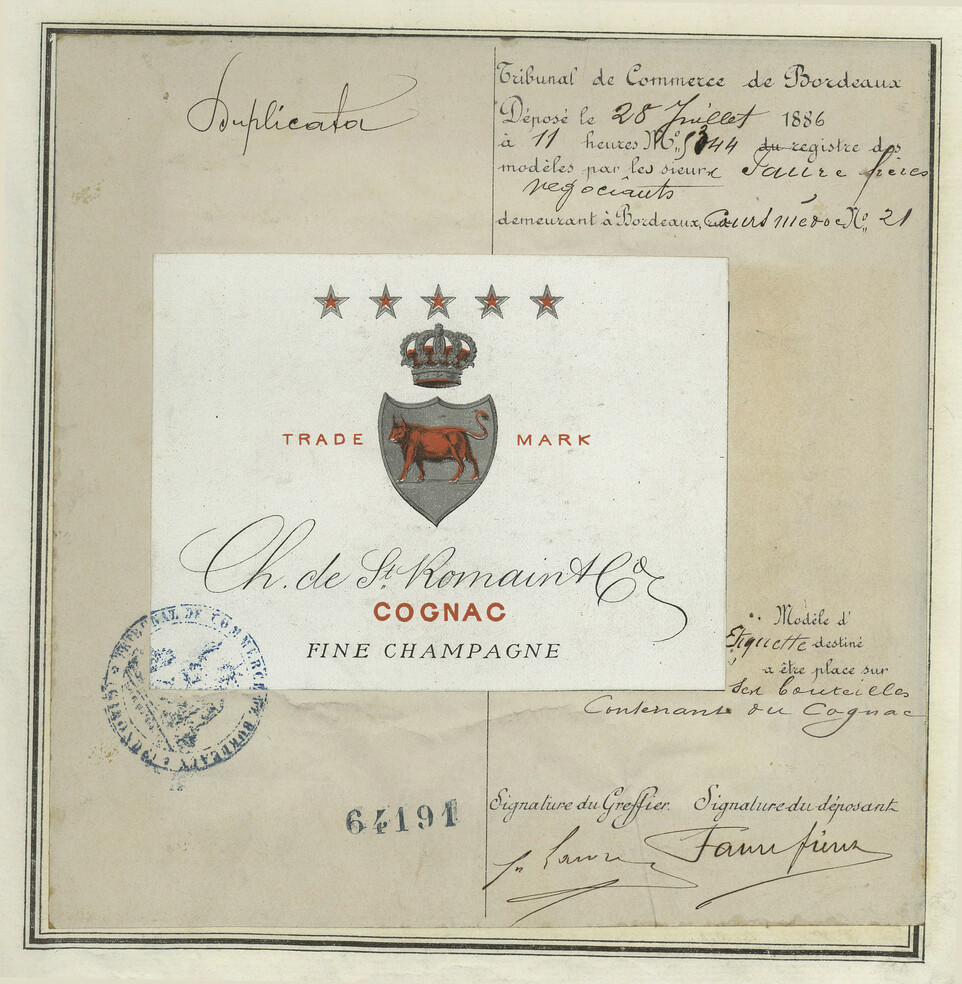 Duplicata
Tribunal de Commerce de Bordeaux
Déposé le 28 Juillet 1886
à 11 heures No. 5344 du registre des
modèles par les sieurs Faure frères
négociants
demeurant à Bordeaux, Cours médoc No. 21
TRADE MARK
Ch. de St. Romain & Co
COGNAC
FINE CHAMPAGNE
Modèle d'
Etiquette destiné
a être place sur
des bouteilles
Contenant du Cognac
TRIBUNAL DE COMMERCE DE BORDEAUX
64191
Signature du Greffier. Signature du déposant
Faure frères